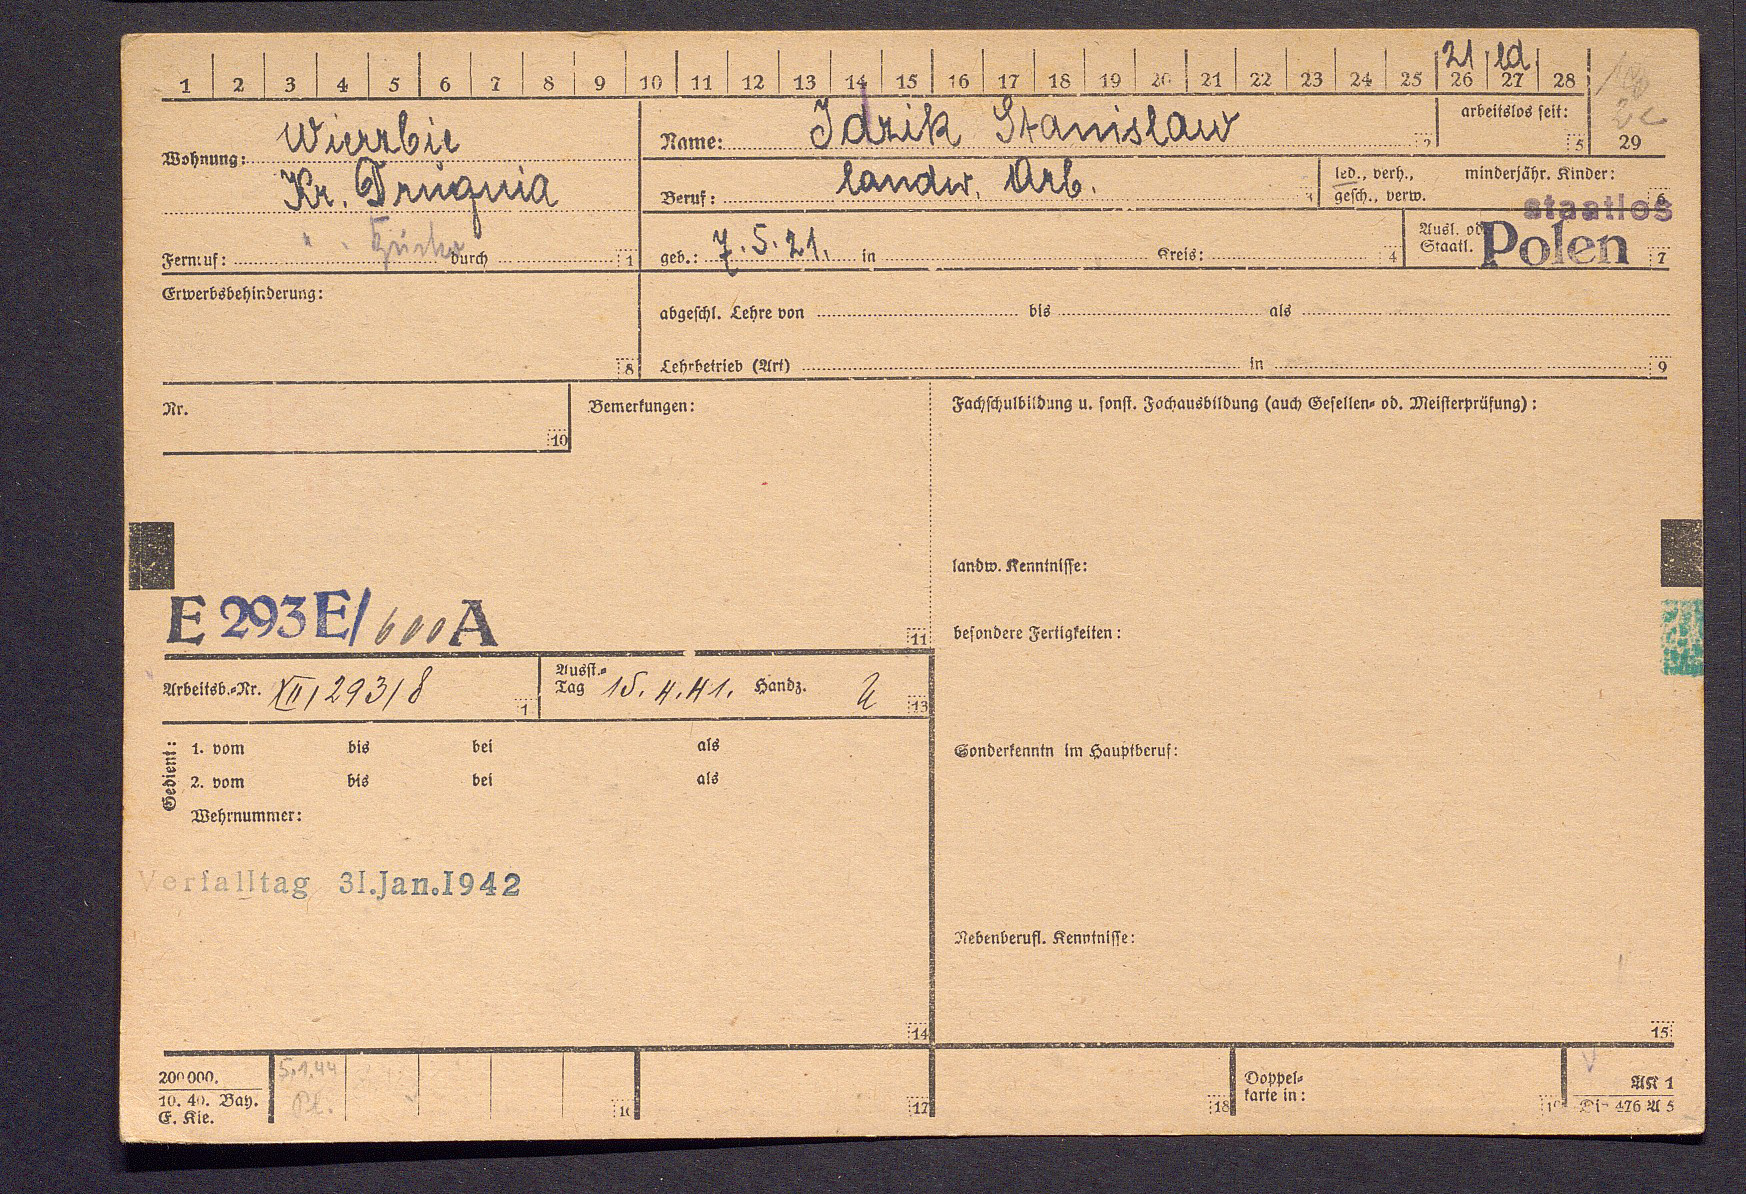 21 ld.
1 2 3 4 5 6 7 8 9 10 11 12 13 14 15 16 17 18 19 20 21 22 23 24 25 26 27 28
29
Wohnung: Wierzbie
Kr.
Fernruf: durch 1
Name: Idzik Stanislaw 2
arbeitslos seit: 5
Beruf: landw. Arb. 3
led., verh., gesch., verw.
minderjähr. Kinder: 6
geb.: 7.5.21. in Kreis: 4
Ausl. od. Staatl.
staatlos
Polen 7
Erwerbsbehinderung: 8
abgeschl. Lehre von bis als
Lehrbetrieb (Art) in 9
Nr. 10
Bemerkungen:
Fachschulbildung u. sonst. Fachausbildung (auch Gesellen- od. Meisterprüfung):
landw. Kenntnisse:
E 293 E/ 600 A 11
besondere Fertigkeiten:
Arbeitsb.-Nr. XII/293/8 1
Ausst.-Tag 15.4.41. Handz. 13
Gedient:
1. vom bis bei als
2. vom bis bei als
Wehrnummer:
Sonderkenntn im Hauptberuf:
Verfalltag 31.Jan.1942
Nebenberufl. Kenntnisse:
14 15
200 000.
10. 40. Bay.
E. Kie.
5.1.44
Pl.
16 17 18
Doppel-
karte in: 19
AK 1
Di 476 A 5